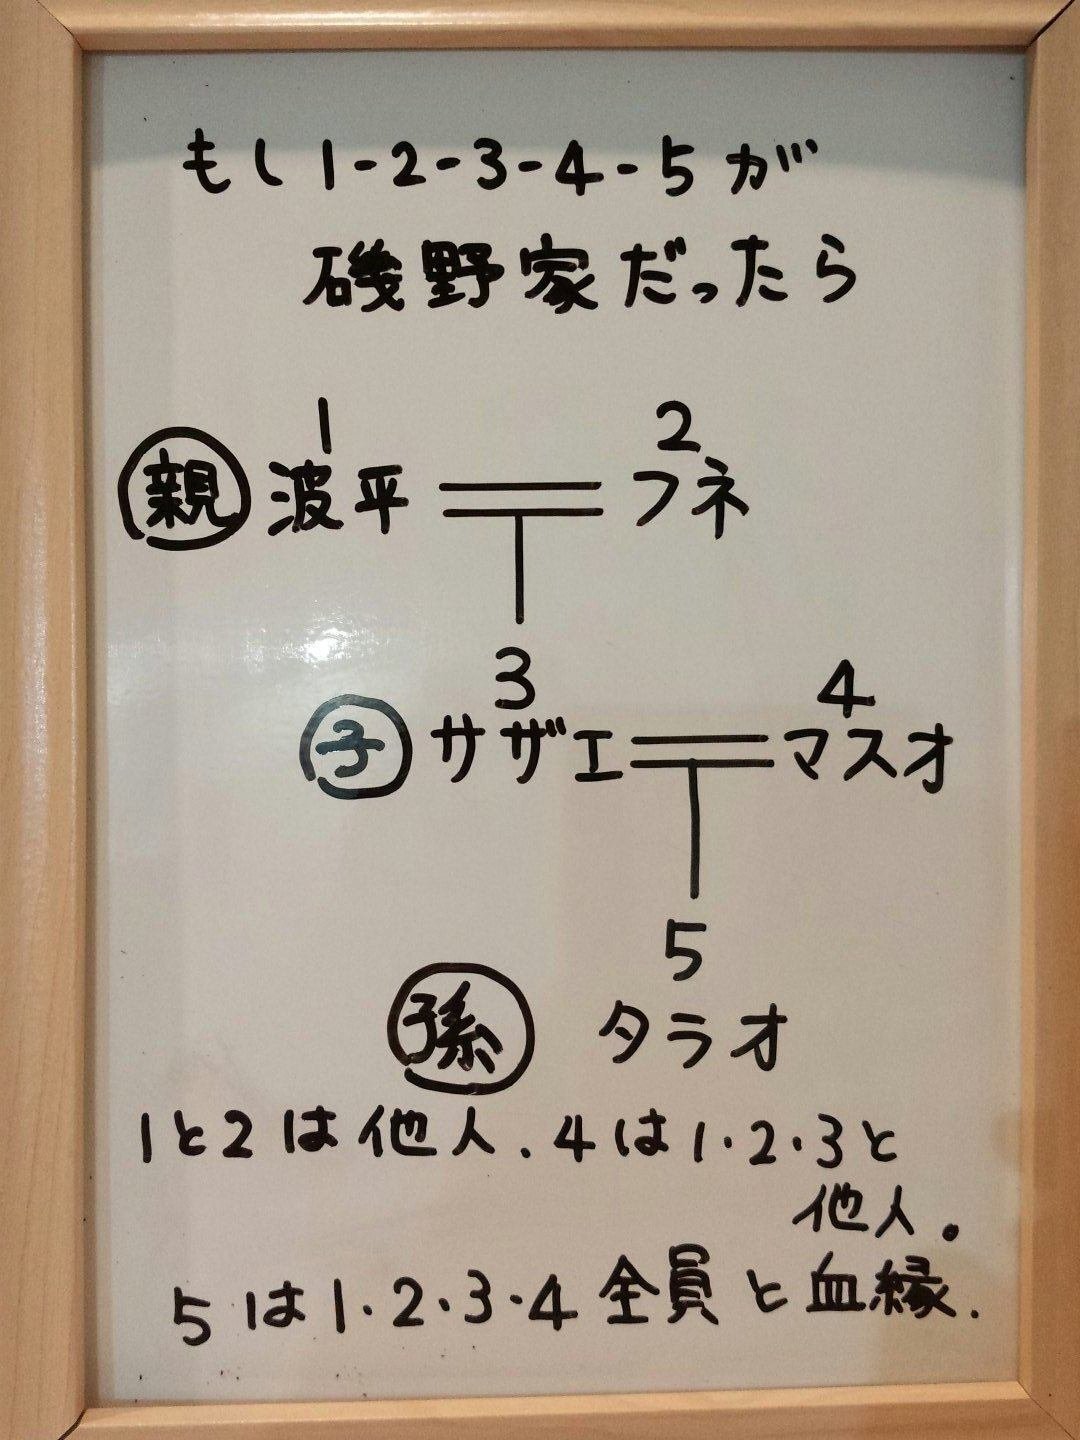 もし1-2-3-4-5が
磯野家だったら
1 2
親 波平 フネ
3 4
子 サザエ マスオ
5
孫 タラオ
1と2は他人.4は1・2・3と
他人。
5は1・2・3・4全員と血縁.